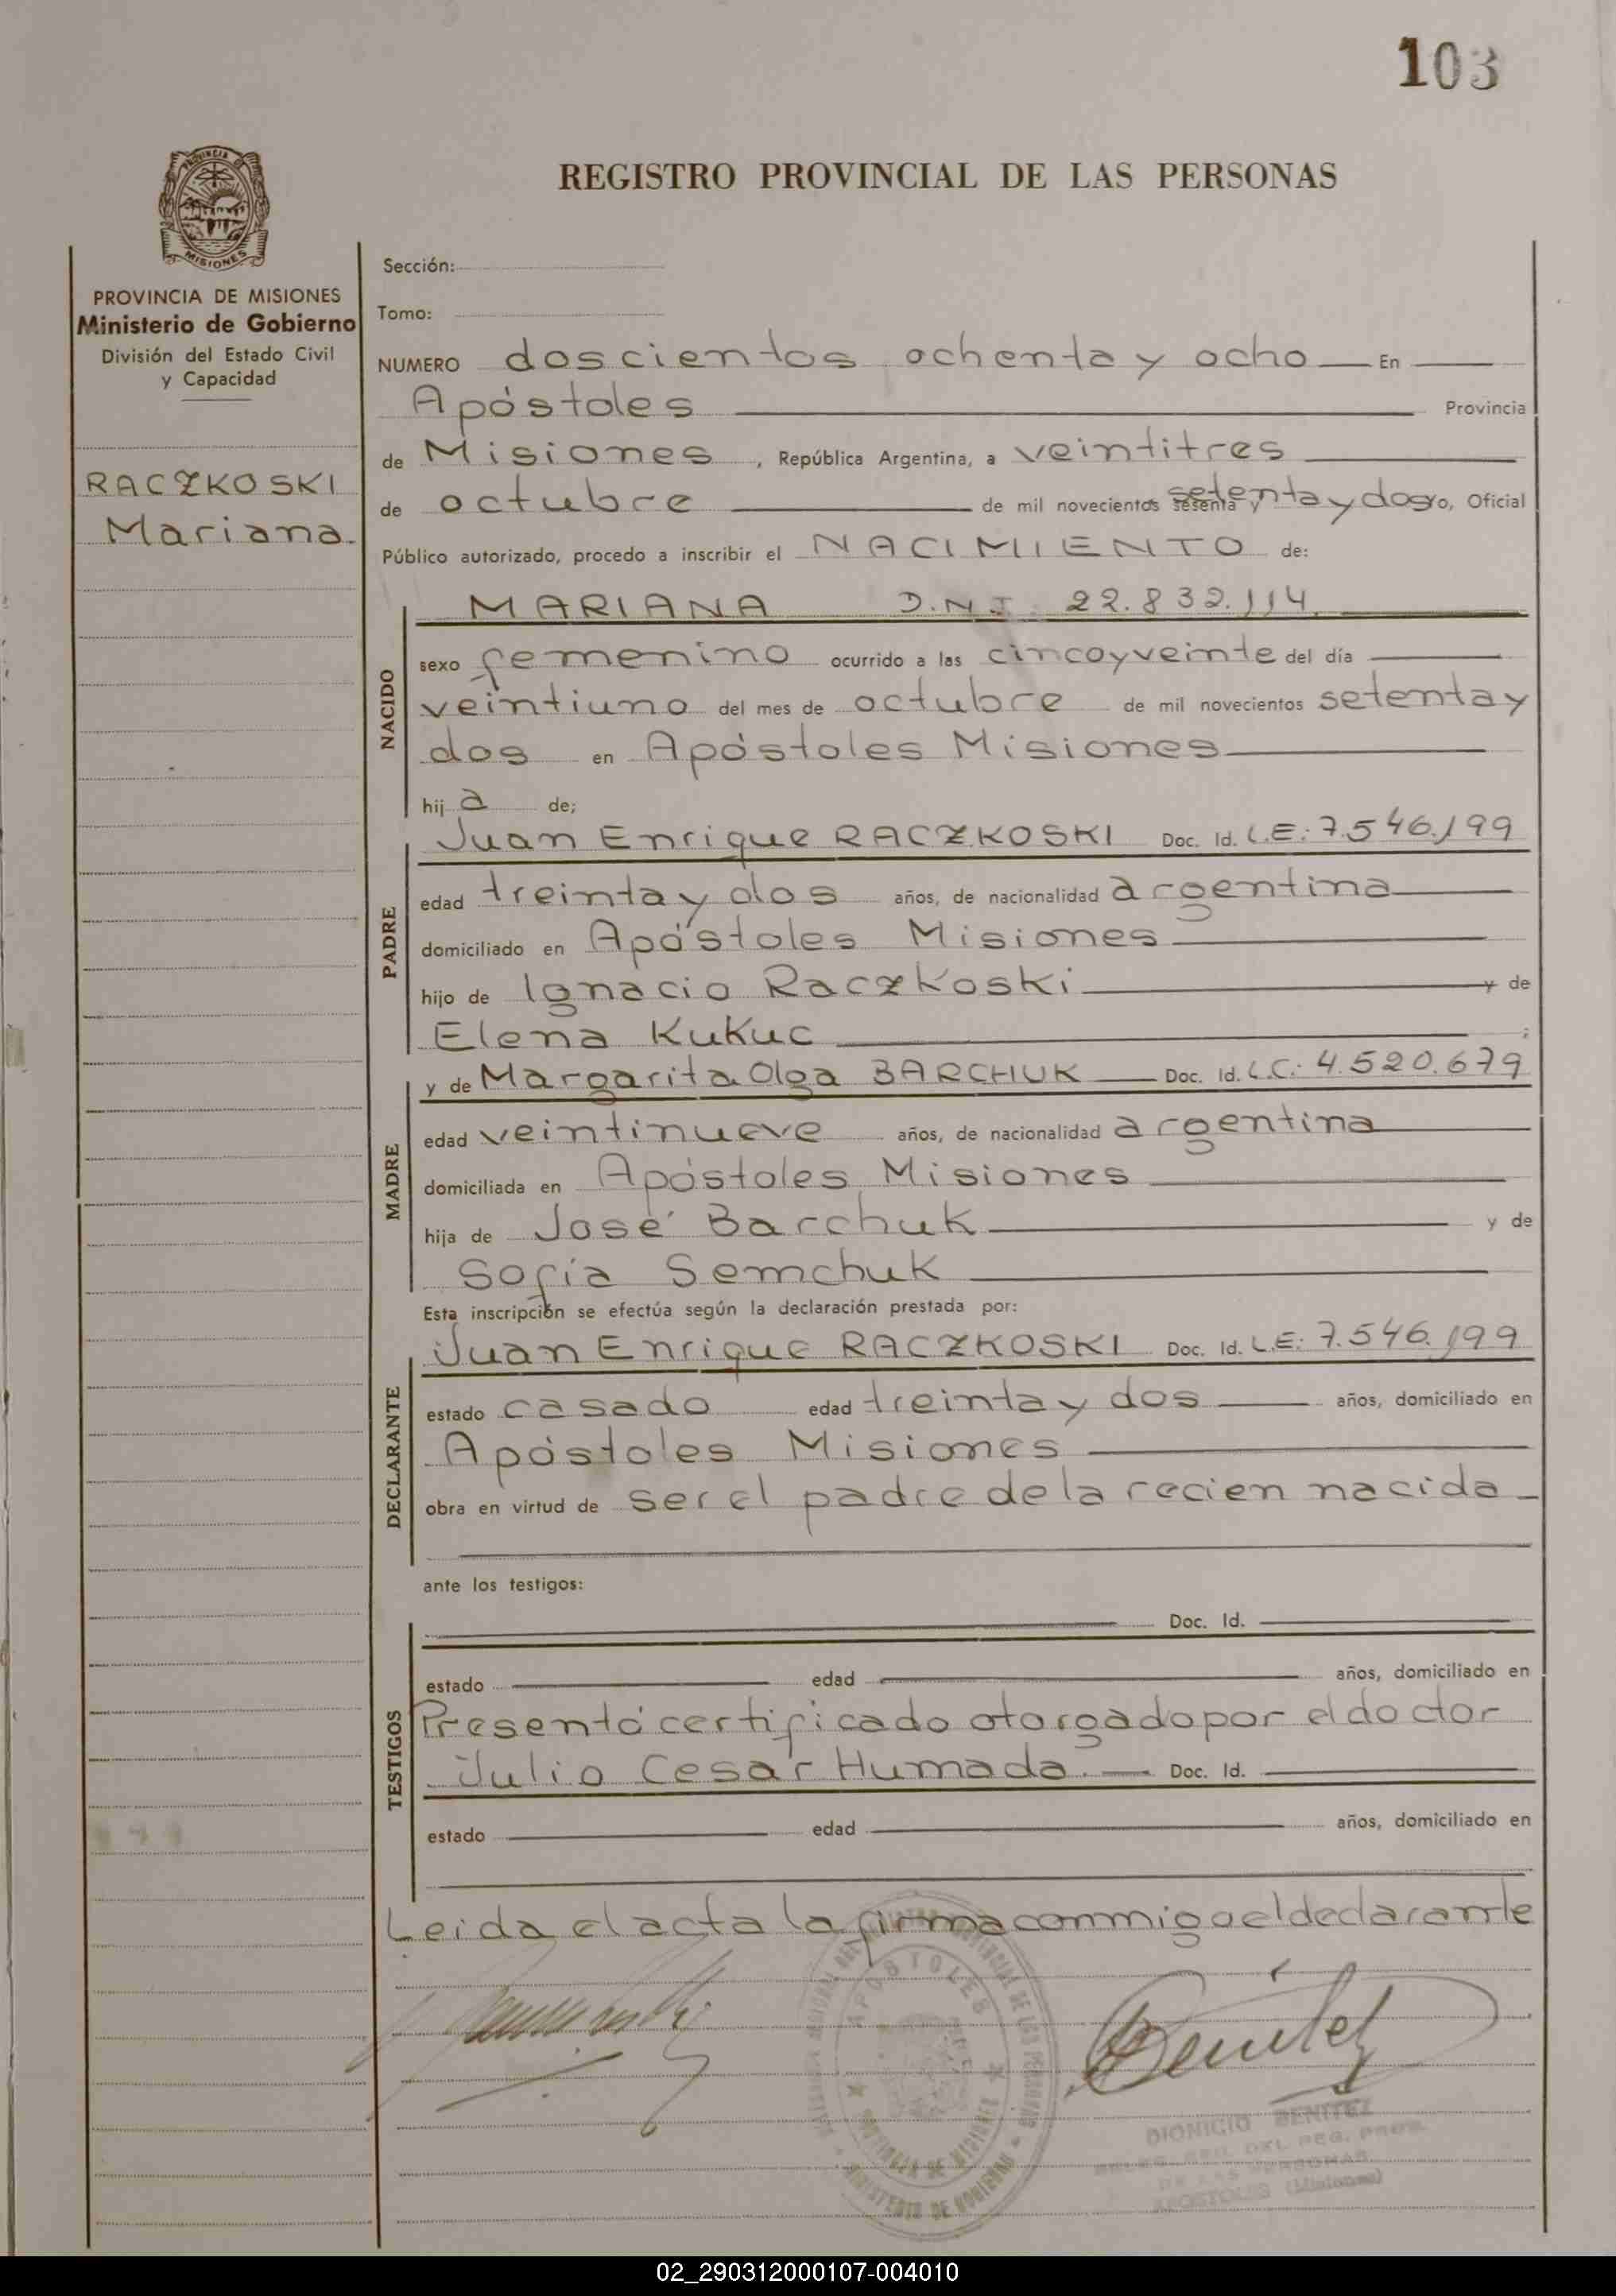 103
REGISTRO PROVINCIAL DE LAS PERSONAS
PROVINCIA
MISIONES
PROVINCIA DE MISIONES
Ministerio de Gobierno
División del Estado Civil
y Capacidad
RACZKOSKI
Mariana.
Sección:
Tomo:
NUMERO doscientos ochenta y ocho En
Apóstoles Provincia
de Misiones, República Argentina, a veintitres
de octubre de mil novecientos sesenta y setenta y dos yo, Oficial
Público autorizado, procedo a inscribir el NACIMIENTO de:
NACIDO
MARIANA D.N.I. 22.832.114.
sexo femenino ocurrido a las cinco y veinte del día
veintiuno del mes de octubre de mil novecientos setenta y
dos en Apóstoles Misiones
hija de;
PADRE
Juan Enrique RACZKOSKI Doc. Id. L.E: 7.546.199
edad treinta y dos años, de nacionalidad argentina
domiciliado en Apóstoles Misiones
hijo de Ignacio Raczkoski y de
Elena Kukuc ;
MADRE
y de Margarita Olga BARCHUK Doc. Id. L.C.: 4.520.679
edad veintinueve años, de nacionalidad argentina
domiciliada en Apóstoles Misiones
hija de José Barchuk y de
Sofía Semchuk
Esta inscripción se efectúa según la declaración prestada por:
DECLARANTE
Juan Enrique RACZKOSKI Doc. Id. L.E: 7.546.199
estado casado edad treinta y dos años, domiciliado en
Apóstoles Misiones
obra en virtud de ser el padre de la recien nacida
ante los testigos:
TESTIGOS
Doc. Id.
estado edad años, domiciliado en
Presentó certificado otorgado por el doctor
Julio Cesar Humada. Doc. Id.
estado edad años, domiciliado en
Leida el acta la firma conmigo el declarante
APOSTOLES
PROVINCIA DE MISIONES
MINISTERIO DE GOBIERNO
Benítez
DIONICIO BENITEZ
DEL REG. PROV.
DE LAS PERSONAS
APOSTOLES (Misiones)
02_290312000107-004010